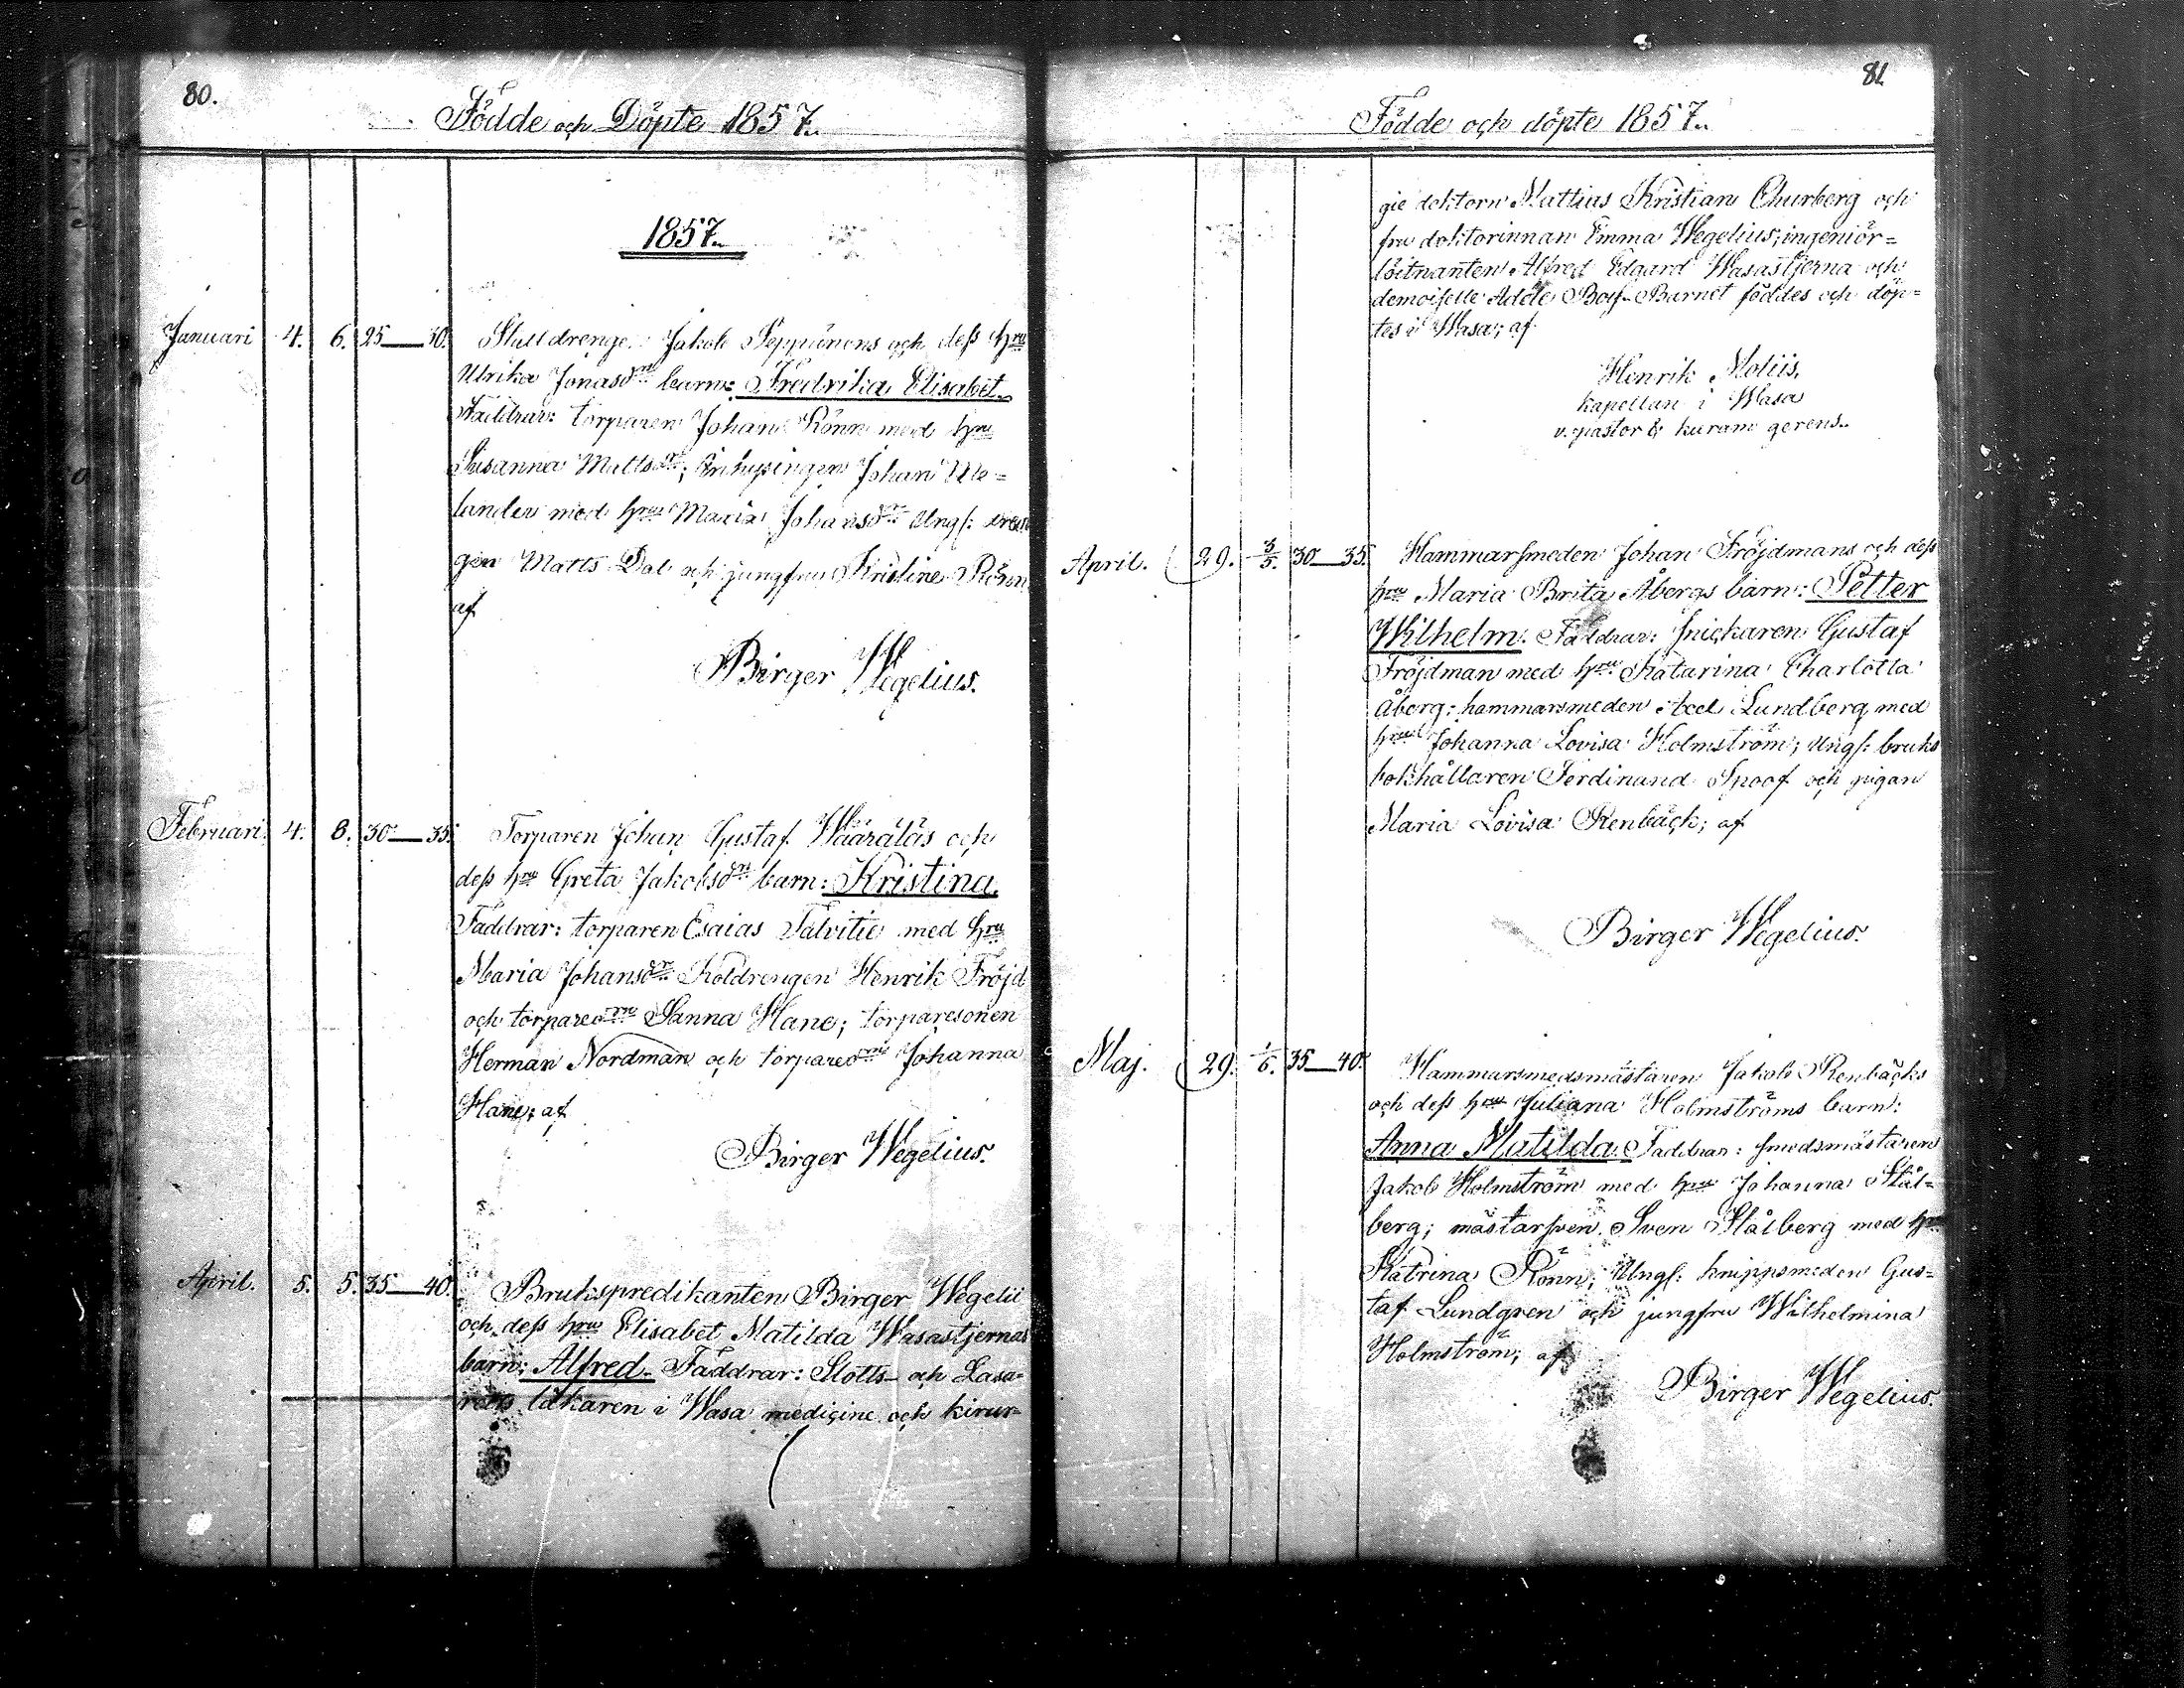 80.
Födde och Döpte 1857.
1857.
Januari 4. 6. 25—30. Stalldrengen Jakob Seppänens och dess hru
Ulrika Jonasdr barn: Fredrika Elisabet.
Faddrar: torparen Johan Rönn med hru
Susanna Mattsdr; Inhysingen Johan Me=
lander med hru Maria Johansdr Ungf: dren
gen Matts Dal och jungfru Kristine Rönn
af
Birger Wegelius.
Februari. 4. 8. 30—35. Torparen Johan Gustaf Wääräläs och
dess hru Greta Jakobsdr barn: Kristina.
Faddrar: torparen Esaias Talvitie med hru
Maria Johansdr Koldrengen Henrik Fröjd
och torpareo Sanna Hane; torparesonen
Herman Nordman och torpareo Johanna
Hane; af
Birger Wegelius.
April. 5. 5. 35—40. Brukspredikanten Birger Wegelii
och dess hru Elisabet Matilda Wasastjernas
barn: Alfred. Faddrar: Slotts- och Lasa=
retts läkaren i Wasa medicine och kirur=
81
Födde och döpte 1857.
gie doktorn Mattias Kristian Churberg och
fru doktorinnan Emma Wegelius; ingeniör=
löitnanten Alfred Edgard Wasastjerna och
demoiselle Adele Boij. Barnet föddes och döp=
tes i Wasa; af
Henrik Moliis,
kapellan i Wasa
v. pastor & kuram gerens.
April. 29. 3/5. 30—35. Hammarsmeden Johan Fröjdmans och dess
hru Maria Brita Åbergs barn: Petter
Wilhelm. Faddrar: snickaren Gustaf
Fröjdman med hru Katarina Charlotta
Åberg; hammarsmeden Axel Lundberg med
hru Johanna Lovisa Holmström; Ungf: bruks
bokhållaren Ferdinand Spoof och pigan
Maria Lovisa Renbäck; af
Birger Wegelius.
Maj. 29. 1/6. 35—40. Hammarsmedsmästaren Jakob Renbäcks
och dess hru Juliana Holmströms barn:
Anna Matilda. Faddrar: smedsmästaren
Jakob Holmström med hru Johanna Stål=
berg; mästarsven Sven Stålberg med hru
Katrina Rönn; Ungf: knippsmeden Gus=
taf Lundgren och jungfru Wilhelmina
Holmström; af
Birger Wegelius.